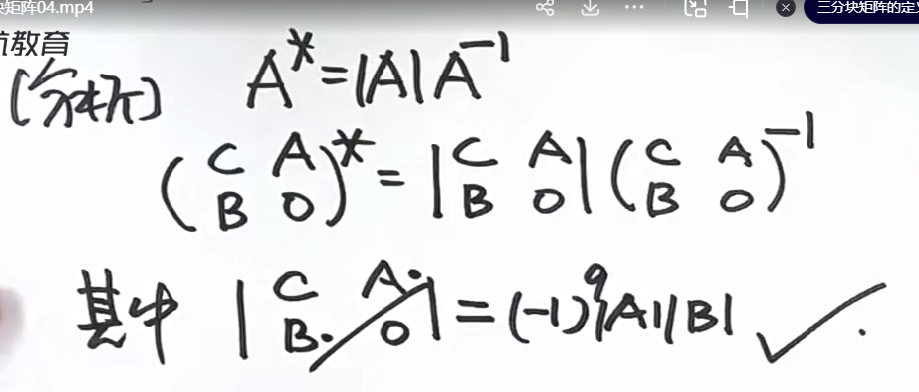 块矩阵04.mp4
三分块矩阵的定义
航教育
[分析] A* = |A| A⁻¹
(C A; B O)* = |C A; B O| (C A; B O)⁻¹
其中 |C A; B O| = (-1)⁹|A||B| ✓.